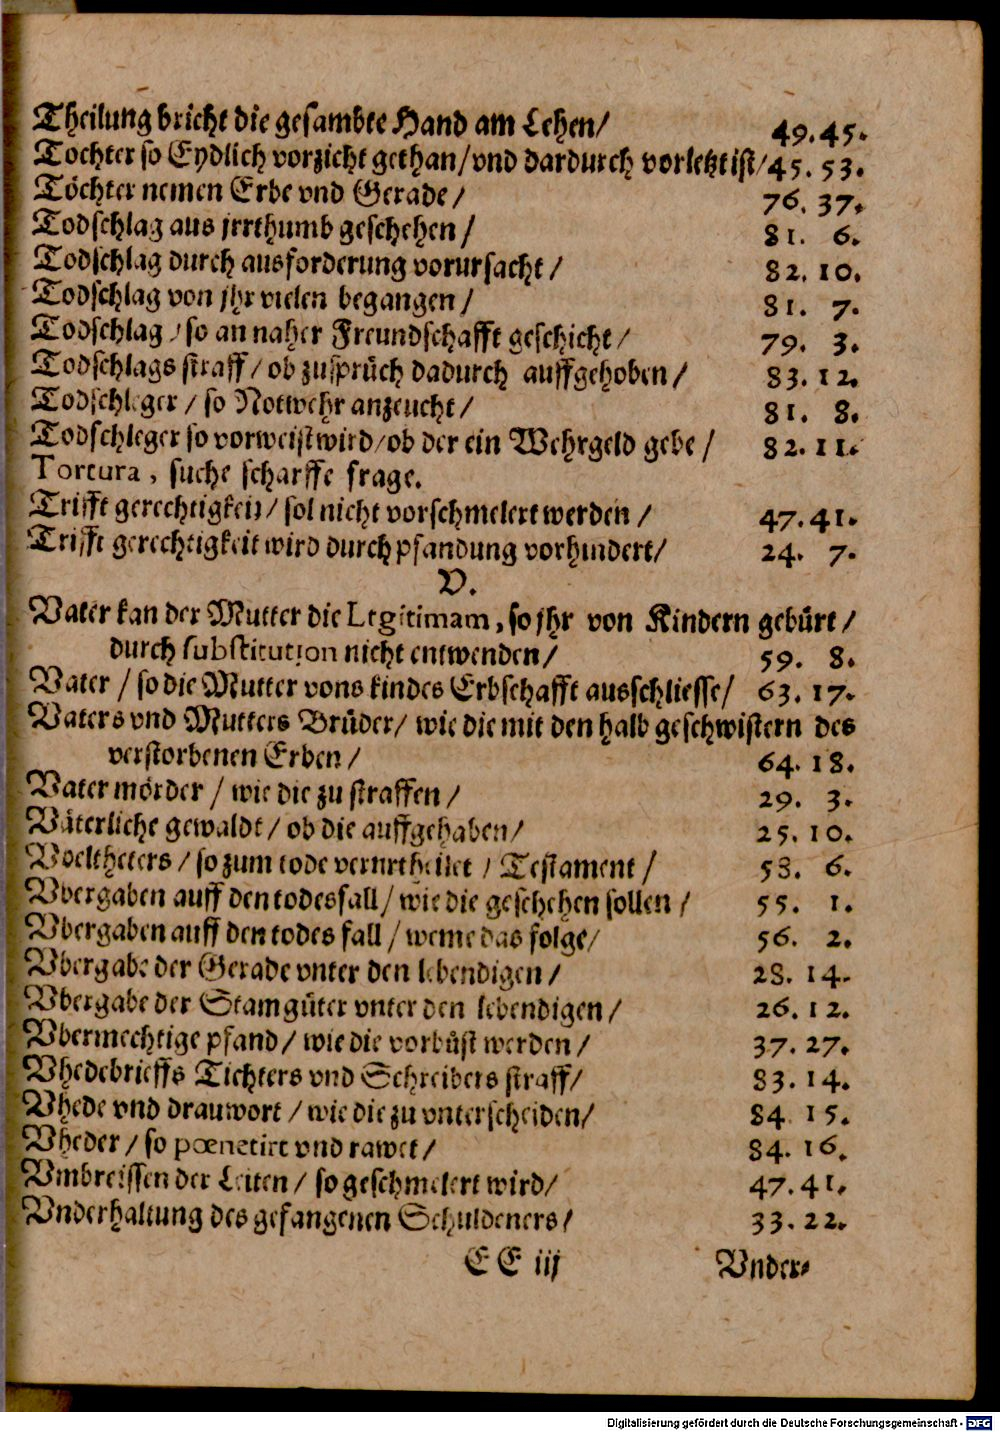 Theilung bricht die gesambte Hand am Lehen/ 49. 45.
Tochter so Eydlich vorzicht gethan/vnd dardurch vorletzt ist/ 45. 53.
Töchter nemen Erbe vnd Gerade/ 76. 37.
Todschlag aus jrrthumb geschehen/ 81. 6.
Todschlag durch ausforderung vorursacht/ 82. 10.
Todschlag von jhr vielen begangen/ 81. 7.
Todschlag/so an naher Freundschafft geschicht/ 79. 3.
Todschlags straff/ob zusprüch dadurch auffgehoben/ 83. 12.
Todschleger/so Notwehr anzeucht/ 81. 8.
Todschleger so vorweist wird/ob der ein Wehrgeld gebe/ 82. 11.
Tortura, suche scharffe frage.
Trifft gerechtigkeit/sol nicht vorschmelert werden/ 47. 41.
Trifft gerechtigkeit wird durch pfandung vorhindert/ 24. 7.
V.
Vater kan der Mutter die Legitimam, so jhr von Kindern gebürt/
durch substitution nicht entwenden/ 59. 8.
Vater/so die Mutter vons kindes Erbschafft ausschliesse/ 63. 17.
Vaters vnd Mutters Brüder/wie die mit den halb geschwistern des
verstorbenen Erben/ 64. 18.
Vater mörder/wie die zu straffen/ 29. 3.
Väterliche gewaldt/ob die auffgehaben/ 25. 10.
Voeltheters/so zum tode verurtheilet/Testament/ 58. 6.
Vbergaben auff den todesfall/wie die geschehen sollen/ 55. 1.
Vbergaben auff den todes fall/weme das folge/ 56. 2.
Vbergabe der Gerade vnter den lebendigen/ 28. 14.
Vbergabe der Stamgüter vnter den lebendigen/ 26. 12.
Vbermechtige pfand/wie die vorbüst werden/ 37. 27.
Vhedebrieffs Tichters vnd Schreibers straff/ 83. 14.
Vhede vnd drauwort/wie die zu vnterscheiden/ 84 15.
Vheder/so pœnetirt vnd rawet/ 84. 16.
Vmbreissen der Leiten/so geschmelert wird/ 47. 41.
Vnderhaltung des gefangenen Schuldeners/ 33. 22.
EE iij Vnder-
Digitalisierung gefördert durch die Deutsche Forschungsgemeinschaft - DFG